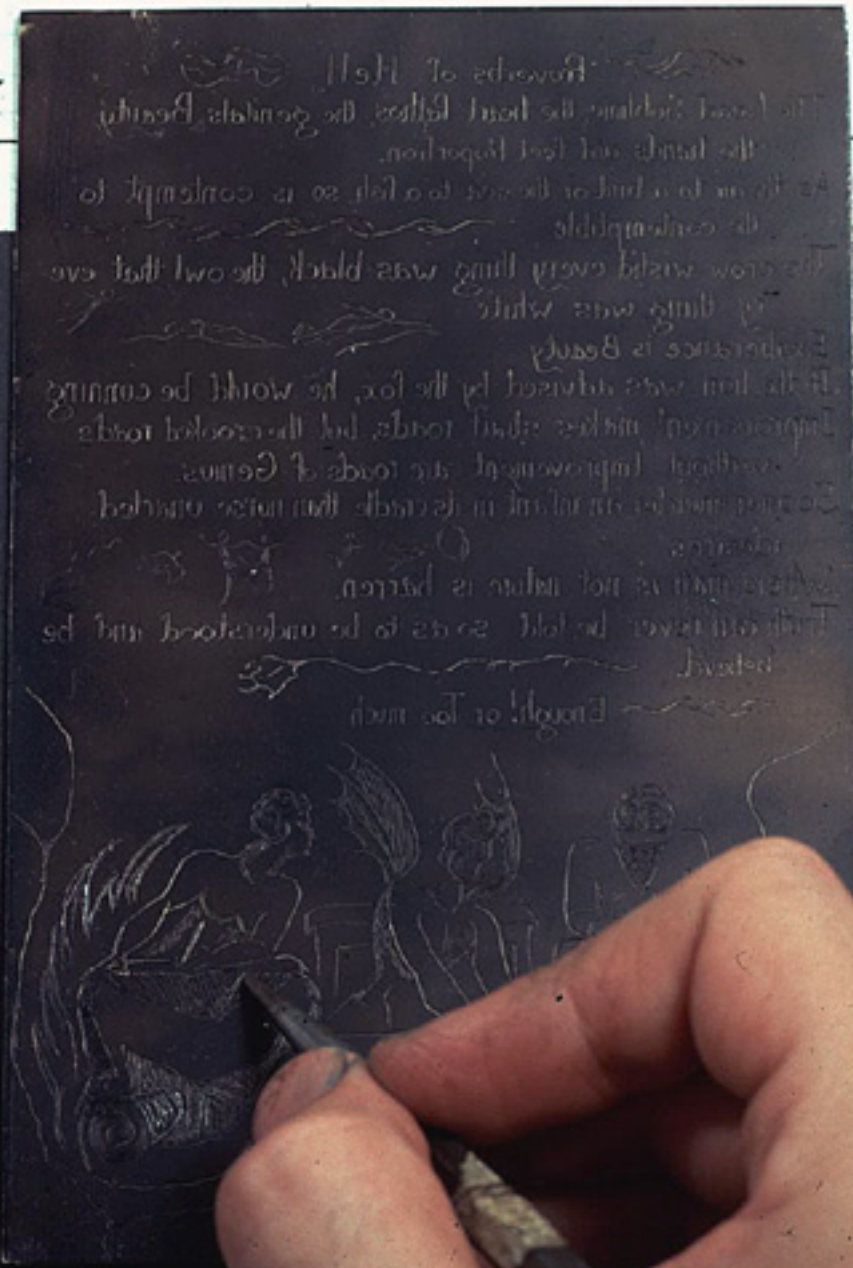 Proverbs of Hell
The head Sublime, the heart Pathos, the genitals Beauty
the hands and feet Proportion.
As the air to a bird or the sea to a fish, so is contempt to
the contemptible
The crow wish'd every thing was black, the owl that eve
ry thing was white
Exuberance is Beauty
If the lion was advised by the fox, he would be cunning
Improvement makes strait roads, but the crooked roads
without Improvement are roads of Genius.
Sooner murder an infant in its cradle than nurse unacted
desires
Where man is not nature is barren.
Truth can never be told so as to be understood and be
believd.
Enough! or Too much